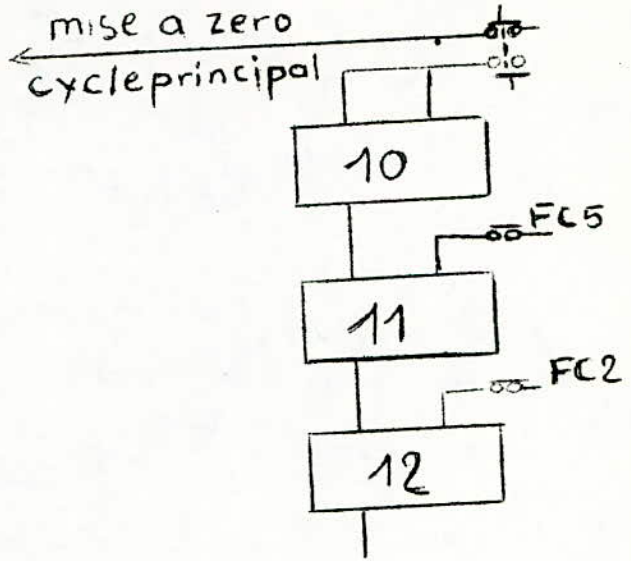 mise a zero
cycle principal
10
FC5
11
FC2
12